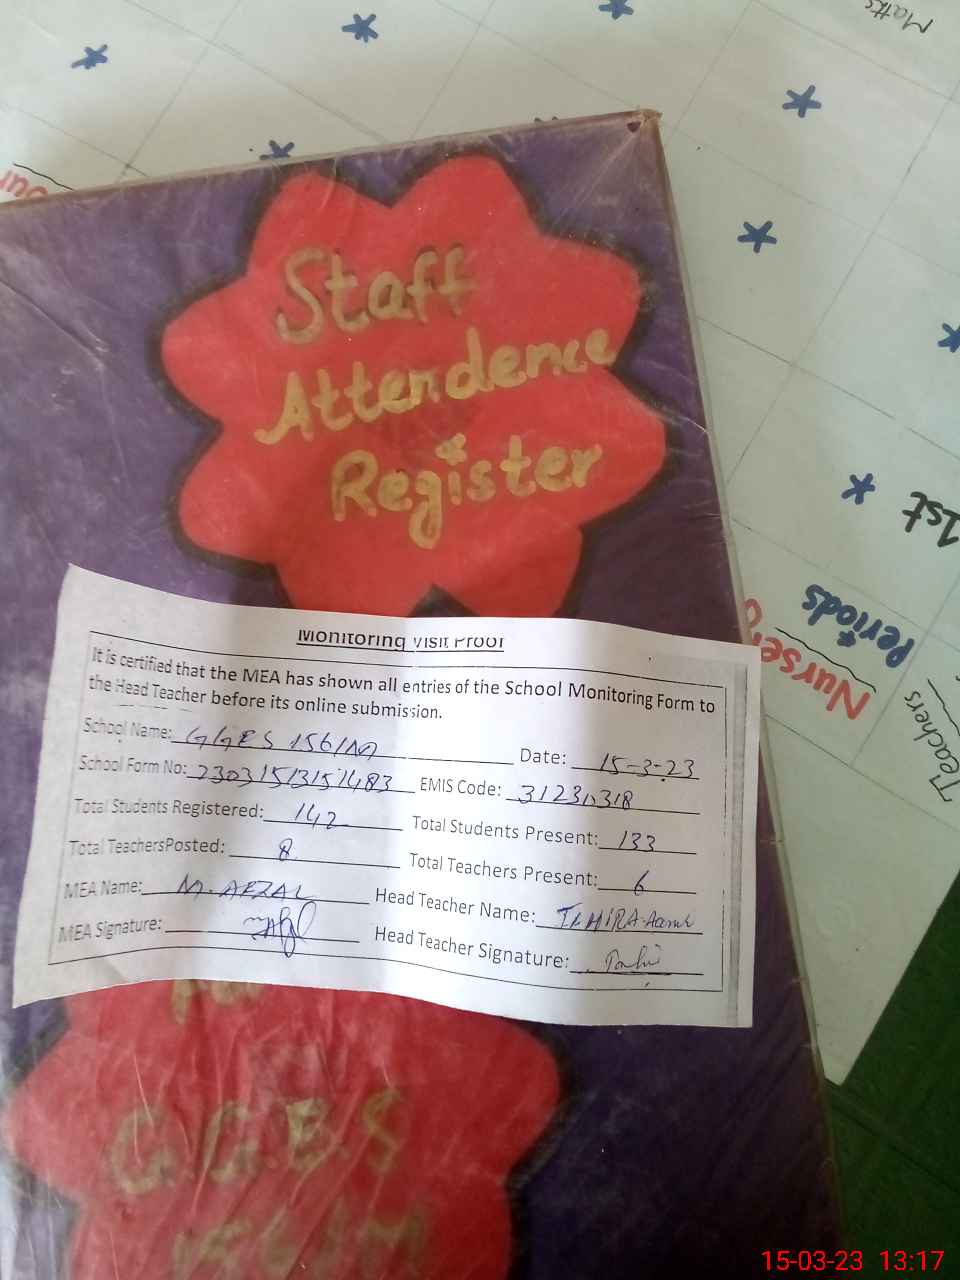 Maths
Staff
Attendence
Register
1st
Periods
Nursery
Teachers
Monitoring Visit Proof
It is certified that the MEA has shown all entries of the School Monitoring Form to
the Head Teacher before its online submission.
School Name: GGES 156/M Date: 15-3-23
School Form No: 23031513151483 EMIS Code:
Total Students Registered: 142 Total Students Present: 133
Total TeachersPosted: 8 Total Teachers Present: 6
MEA Name: M. AFZAL Head Teacher Name: TAHIRA
MEA Signature: Head Teacher Signature:
G.G.E.S
156/M
15-03-23 13:17